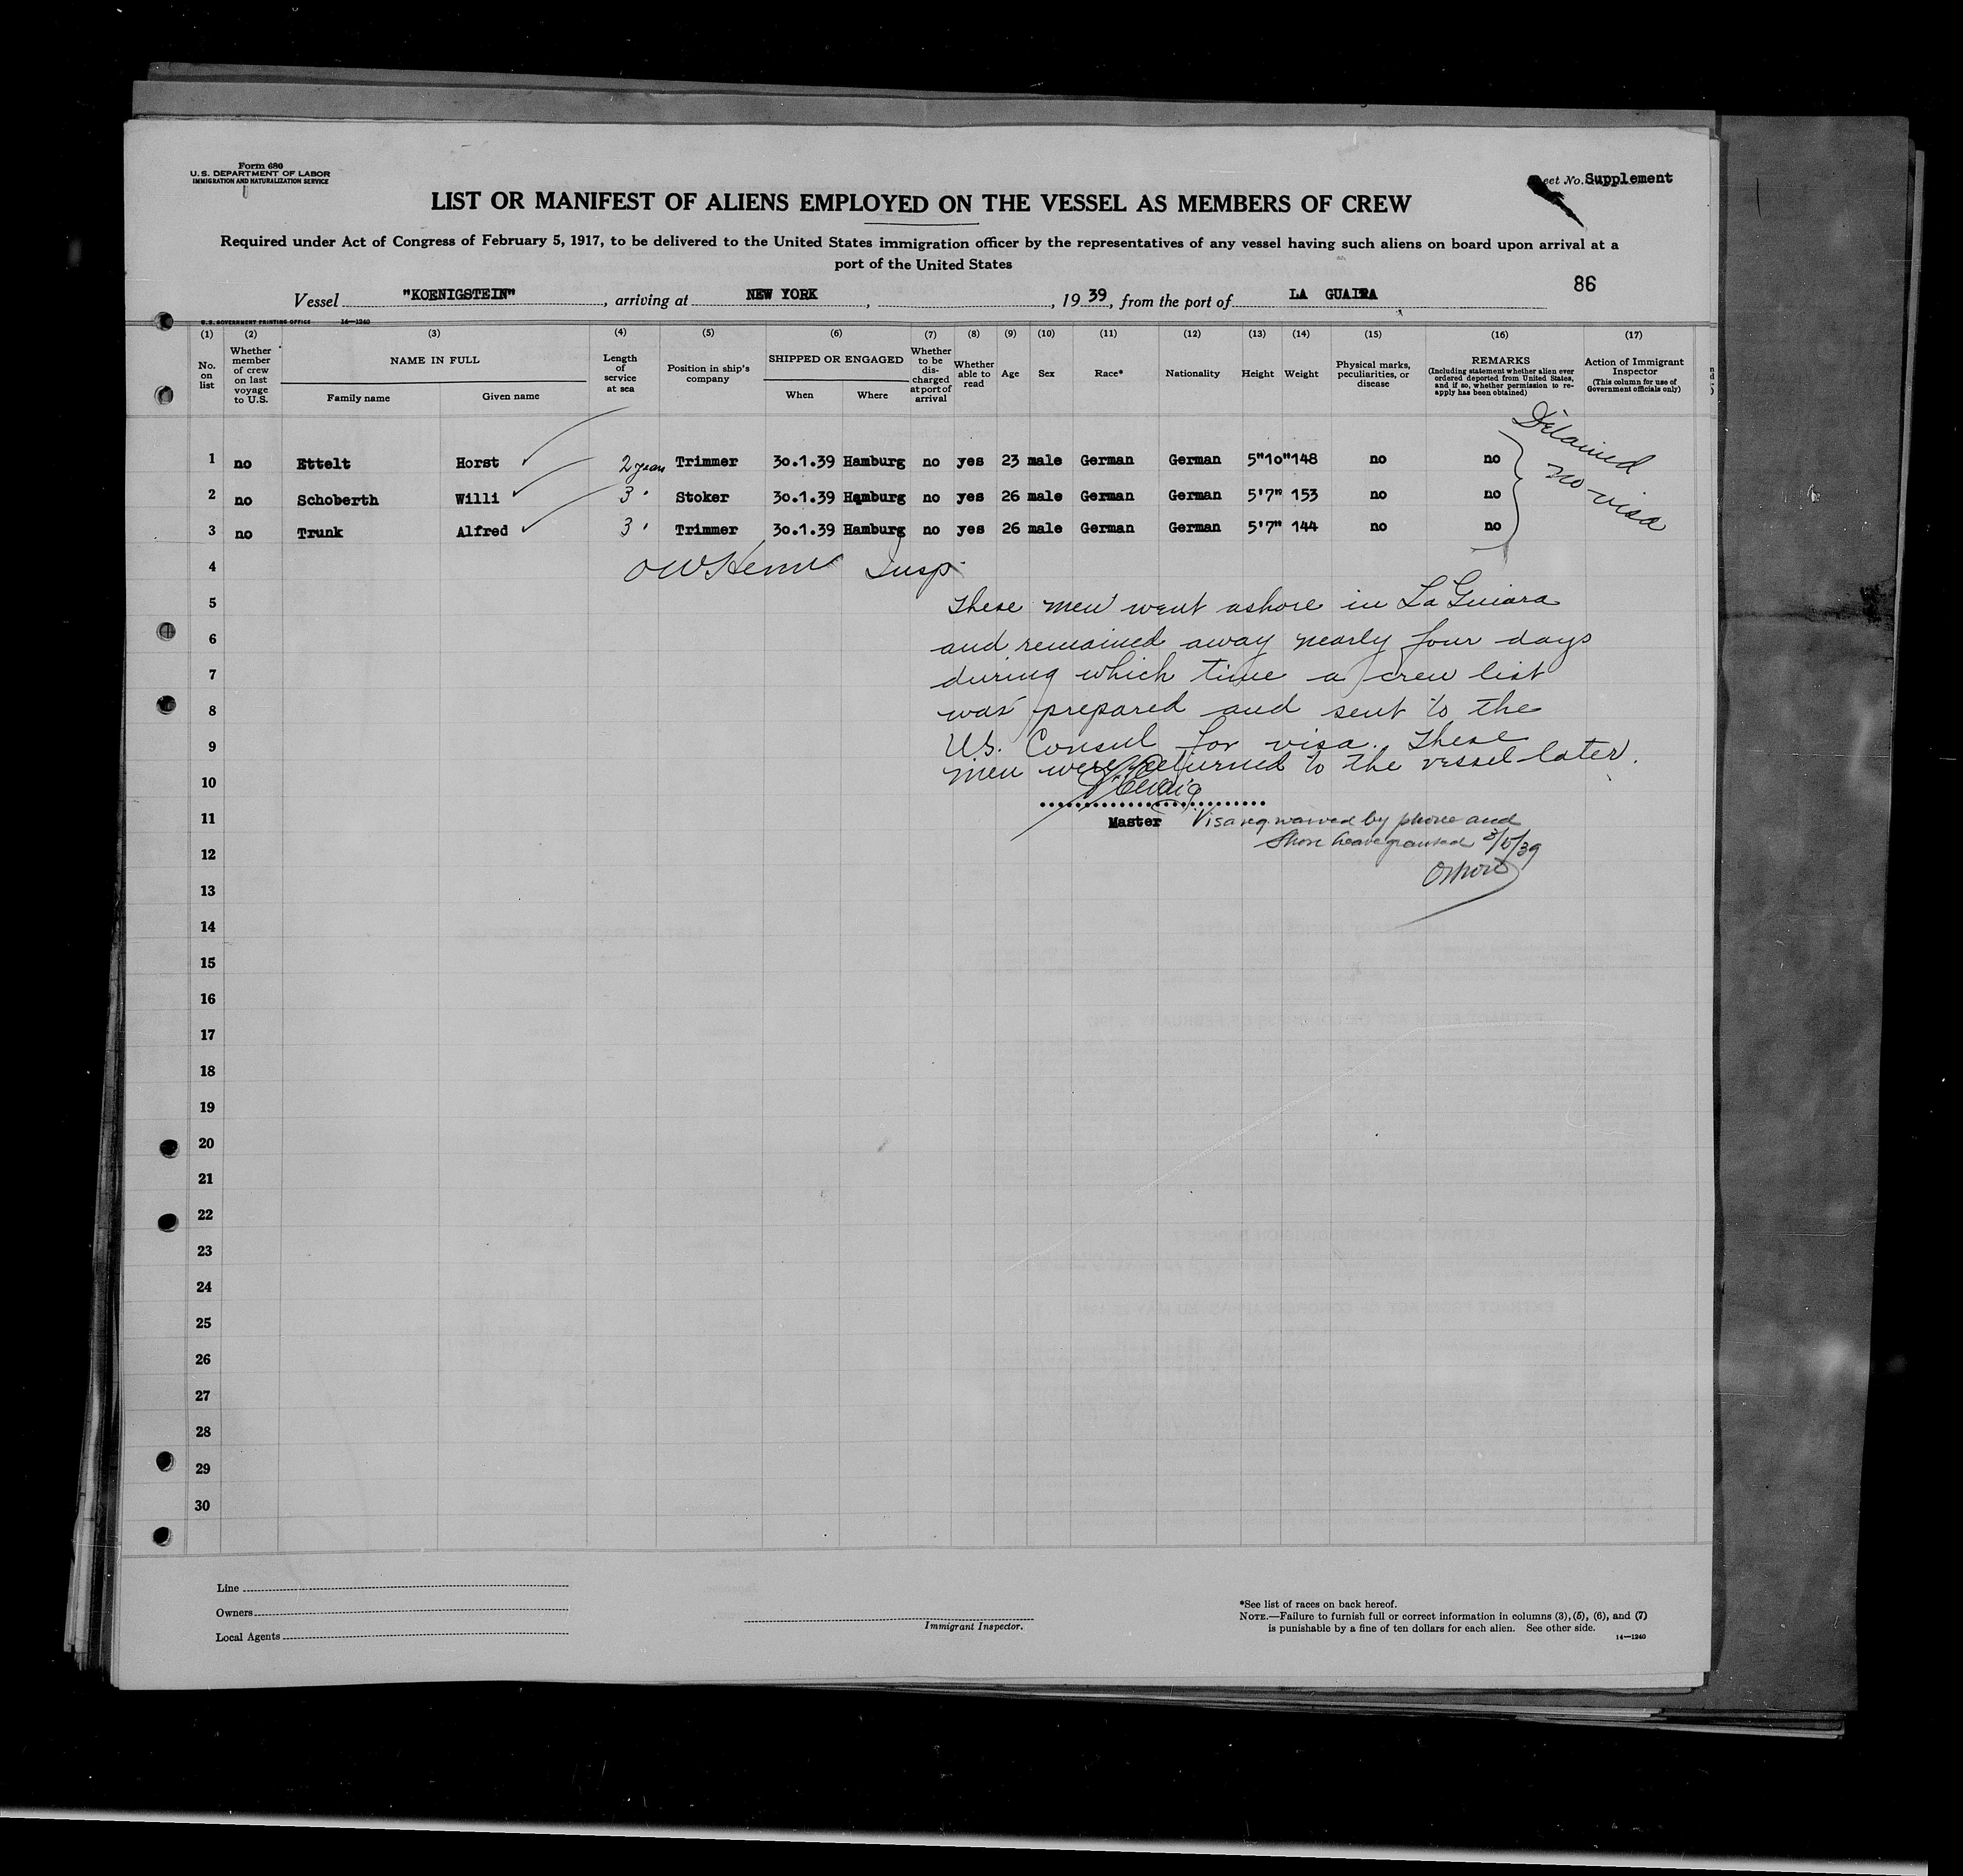 Form 680
U. S. DEPARTMENT OF LABOR
IMMIGRATION AND NATURALIZATION SERVICE
eet No. Supplement
LIST OR MANIFEST OF ALIENS EMPLOYED ON THE VESSEL AS MEMBERS OF CREW
Required under Act of Congress of February 5, 1917, to be delivered to the United States immigration officer by the representatives of any vessel having such aliens on board upon arrival at a
port of the United States
86
Vessel "KOENIGSTEIN", arriving at NEW YORK, , 19 39, from the port of LA GUAIRA
U. S. GOVERNMENT PRINTING OFFICE 14—1240
(1) (2) (3) (4) (5) (6) (7) (8) (9) (10) (11) (12) (13) (14) (15) (16) (17)
No. on list
Whether member of crew on last voyage to U.S.
NAME IN FULL
Family name Given name
Length of service at sea
Position in ship's company
SHIPPED OR ENGAGED
When Where
Whether to be discharged at port of arrival
Whether able to read
Age
Sex
Race*
Nationality
Height
Weight
Physical marks, peculiarities, or disease
REMARKS
(Including statement whether alien ever ordered deported from United States, and if so, whether permission to reapply has been obtained)
Action of Immigrant Inspector
(This column for use of Government officials only)
Detained
no visa
1 no Ettelt Horst 2 years Trimmer 30.1.39 Hamburg no yes 23 male German German 5"10" 148 no no
2 no Schoberth Willi 3 " Stoker 30.1.39 Hamburg no yes 26 male German German 5'7" 153 no no
3 no Trunk Alfred 3 " Trimmer 30.1.39 Hamburg no yes 26 male German German 5'7" 144 no no
4 Insp.
5 These men went ashore in La Guiara
6 and remained away nearly four days
7 during which time a crew list
8 was prepared and sent to the
9 U.S. Consul for visa. These
men were returned to the vessel later.
10
11 Master Visa req. waived by phone and
12 Shore leave granted 3/5/39
13
14
15
16
17
18
19
20
21
22
23
24
25
26
27
28
29
30
Line
Owners
Local Agents
Immigrant Inspector.
*See list of races on back hereof.
NOTE.—Failure to furnish full or correct information in columns (3), (5), (6), and (7)
is punishable by a fine of ten dollars for each alien. See other side.
14—1240